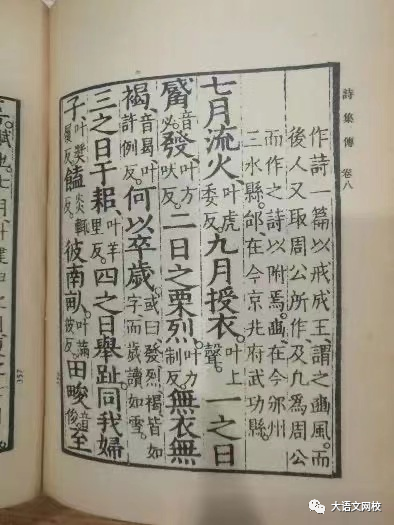 詩集傳 卷八
作詩一篇以戒成王、謂之豳風。而
後人又取周公所作、及凡為周公
而作之詩以附焉。豳、在今邠州
三水縣。邰、在今京兆府武功縣。
七月流火、叶虎委反。九月授衣。叶上聲。一之日
觱音必。發、叶方吠反。二日之栗烈。叶力制反。無衣無
褐、音曷、叶許例反。何以卒歲。或曰發烈褐皆如字而歲讀如雪。
三之日于耜、叶羊里反。四之日舉趾同我婦
子、叶獎履反。饁炎輒反。彼南畝、叶滿彼反。田畯音俊。至
賦也。七月
157
大语文网校